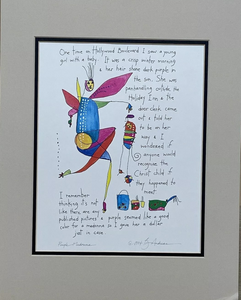 One time on Hollywood Boulevard I saw a young
girl with a baby. It was a crisp winter morning
& her hair shone dark purple in
the sun. She was
panhandling outside the
Holiday Inn & the
door clerk came
out & told her
to be on her
way & I
wondered if
anyone would
recognize the
Christ child if
they happened to
meet.
I remember
thinking it's not
like there are any
published pictures & purple seemed like a good
color for a madonna so I gave her a dollar
just in case.